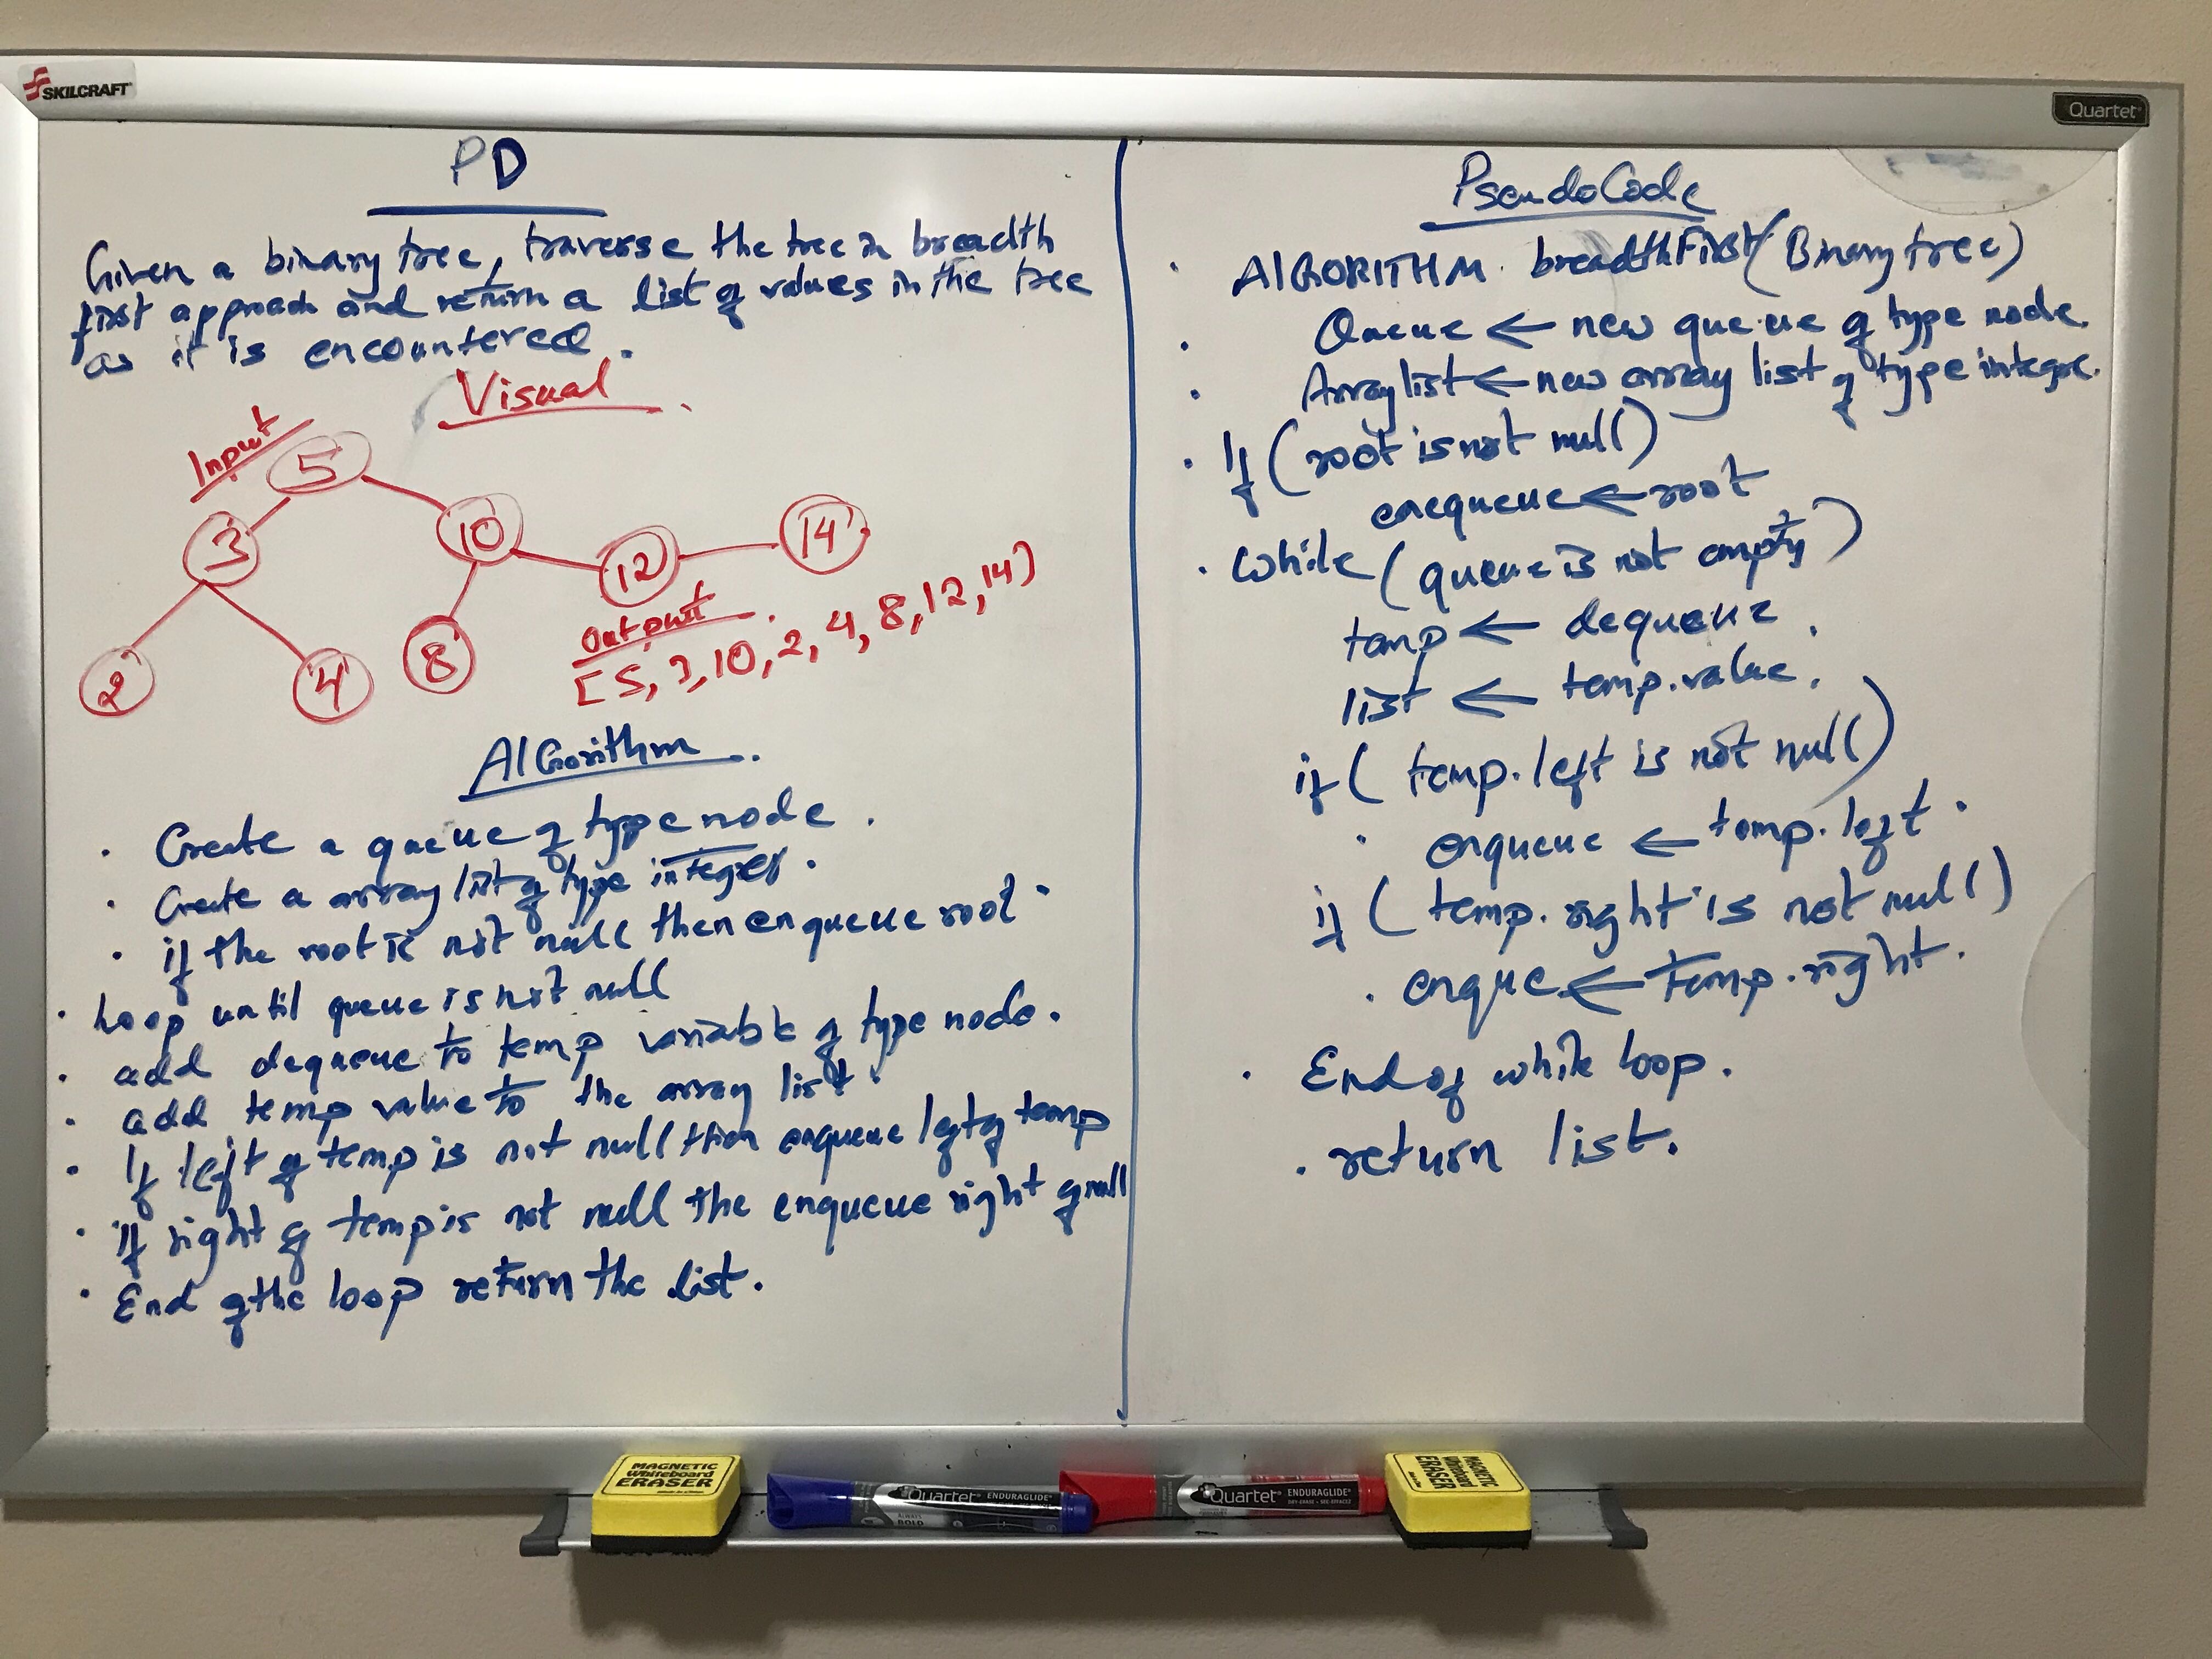 SKILCRAFT
Quartet
PD
Given a binary tree, traverse the tree in breadth
first approach and return a list of values in the tree
as it is encountered.
Visual
Input
5
3
10
12
14
2
4
8
Output
[5, 3, 10, 2, 4, 8, 12, 14]
AlGorithm.
· Create a queue of type node.
· Create a array list of type integer.
· if the root is not null then enqueue root.
· Loop until queue is not null
· add dequeue to temp variable of type node.
· add temp value to the array list.
· If left of temp is not null then enqueue left of temp
· if right of temp is not null the enqueue right of null
· End of the loop return the list.
PseudoCode
· AlGORITHM. breadthFirst(Binary tree)
· Queue ← new queue of type node.
· Array list ← new array list of type integer.
· If (root is not null)
enequeue ← root
· While (queue is not empty)
temp ← dequeue.
list ← temp.value.
if ( temp.left is not null)
· enqueue ← temp.left.
if ( temp.right is not null)
· enque ← temp.right.
· End of while loop.
· return list.
MAGNETIC
Whiteboard
ERASER
Quartet ENDURAGLIDE
BOLD
Quartet ENDURAGLIDE
MAGNETIC
Whiteboard
ERASER